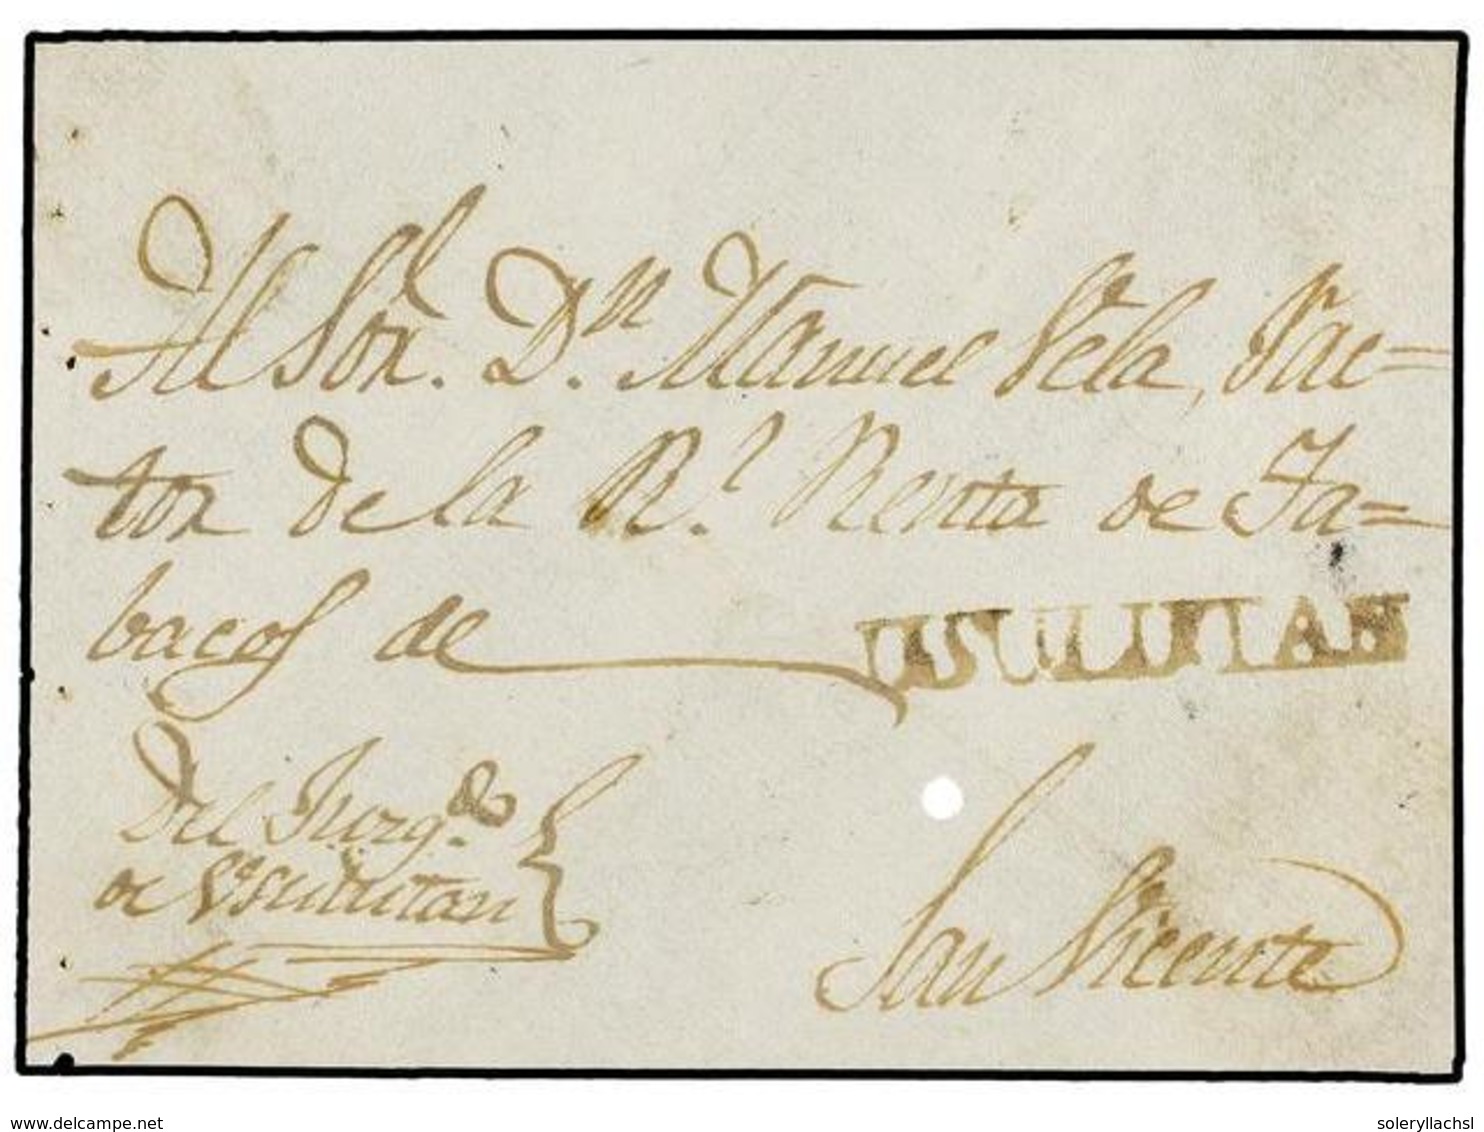 Al Sor. Dn. Manuel Vela, Fac=
tor de la Rl. Renta de Ta=
bacos de
USULUTAN
Del Juzgdo.
de Usulutan
San Vicente
www.delcampe.net
soleryllachsl